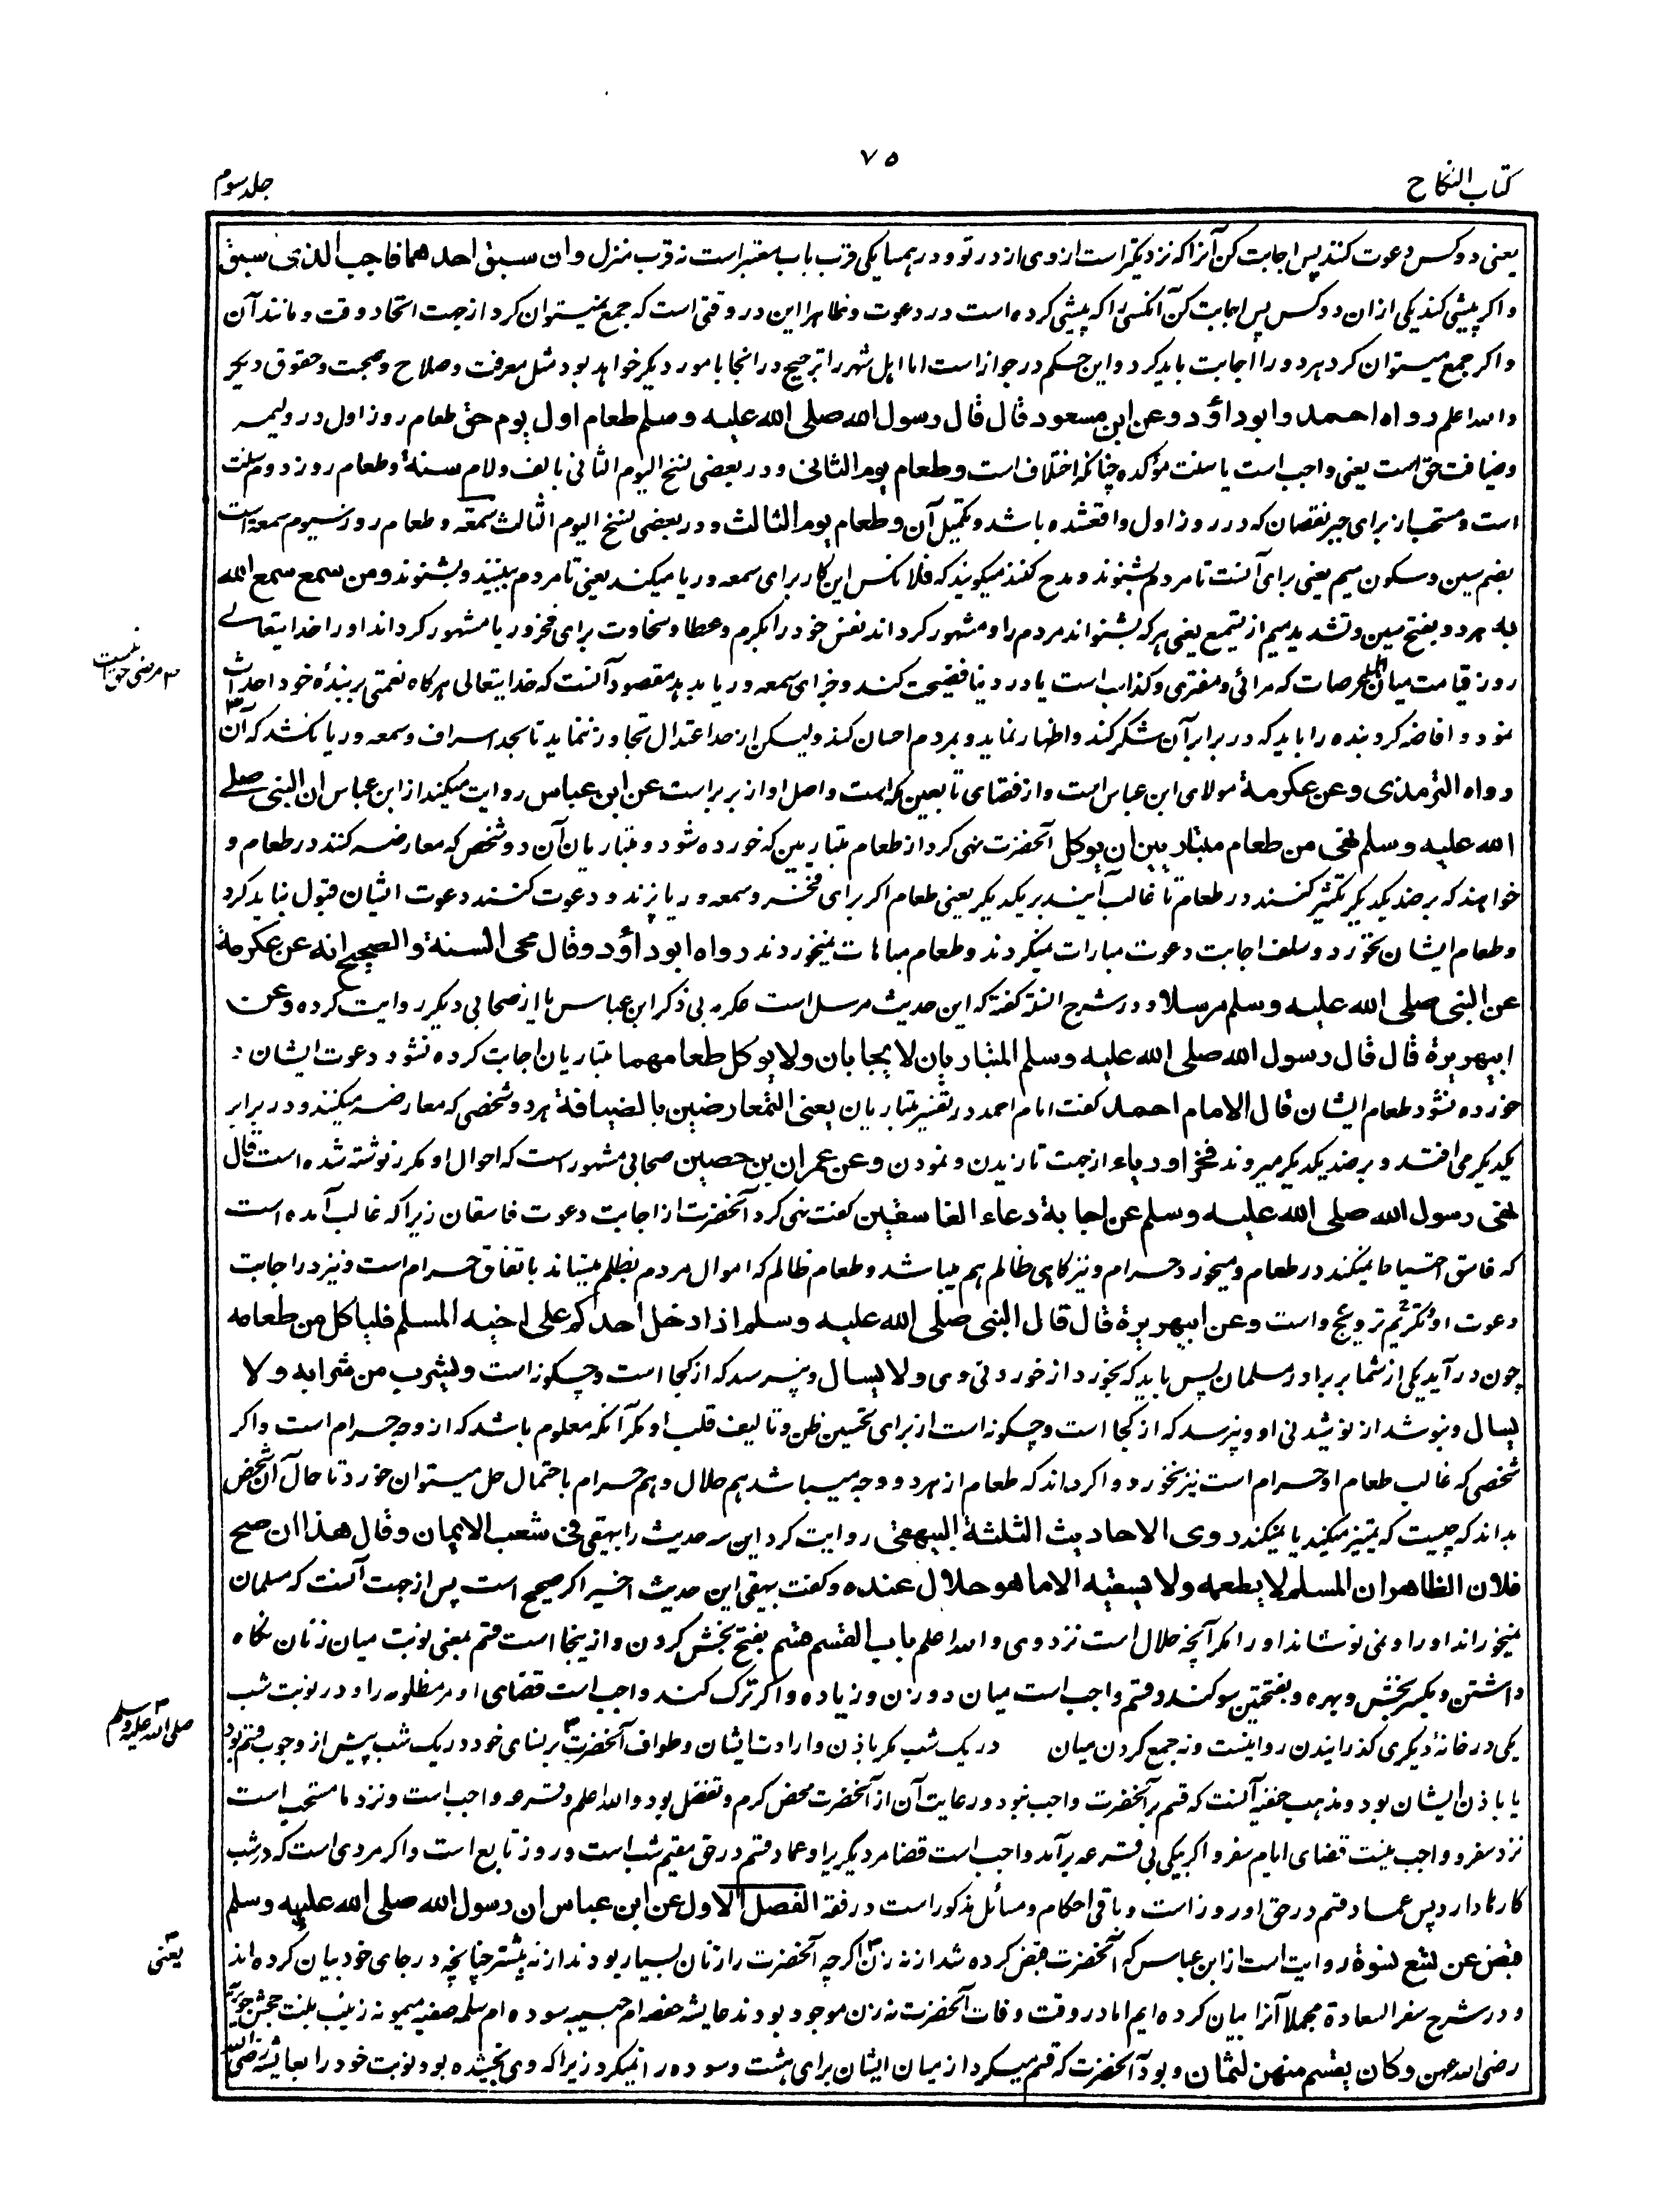 ۷۵
کتاب النکاح
جلد سوم
یعنی دو کس دعوت کنند پس اجابت کن آنرا که نزدیکتر است از وی از در تو و در همسایکی قرب باب معتبر است نه قرب منزل وان سبق احدهما فاجب الذی سبق
واکر پیشی کند یکی ازان دو کس پس اجابت کن آنکسی را که پیشی کرده است در دعوت وظاهرا این در وقتی است که جمع نمیتوان کرد از جهت اتحاد وقت و مانند آن
واکر جمع میتوان کرد هر دو را اجابت باید کرد و این حکم در جواز است اما اهل شهر را ترجیح در انجا بامور دیکر خواهد بود مثل معرفت و صلاح و صحبت و حقوق دیکر
والله اعلم رواه احمد وابوداؤد وعن ابن مسعود قال قال رسول الله صلی الله علیه وسلم طعام اول یوم حق طعام روز اول در ولیمه
وضیافت حق است یعنی واجب است یا سنت مؤکده چنانکه اختلاف است وطعام یوم الثانی ودر بعضی نسخ الیوم الثانی بالف ولام سنة وطعام روز دوم سنت
است ومستحب از برای جبر نقصان که در روز اول واقعشده باشد وتکمیل آن وطعام یوم الثالث ودر بعضی نسخ الیوم الثالث سمعة وطعام روز سیوم سمعه است
بضم سین وسکون میم یعنی برای آنست تا مردم بشنوند ومدح کنند میکویند که فلانکس این کار برای سمعه وریا میکند یعنی تا مردم ببینند وبشنوند ومن سمع سمع الله
به هر دو بفتح سین وتشدید میم از تسمیع یعنی هر که بشنواند مردم را ومشهور کرداند نفس خود را بکرم وعطا وسخاوت برای فخر وریا مشهور کرداند او را خدایتعالی
روز قیامت میان اهل عرصات که مرائی ومفتری وکذاب است یا در دنیا فضیحت کند وجزای سمعه وریا بدهد مقصود آنست که خدایتعالی هرکاه نعمتی بر بندهٔ خود احداث
نمود وافاضه کرد بنده را باید که در برابر آن شکر کند واظهار نماید وبمردم احسان کند ولیکن از حد اعتدال تجاوز ننماید تا بحد اسراف وسمعه وریا نکشد که آن
۳ مرضی حق نیست
رواه الترمذی وعن عکرمة مولای ابن عباس است واز فقهای تابعین مکه است واصل او از بربر است عن ابن عباس روایت میکند از ابن عباس ان النبی صلی
الله علیه وسلم نهی من طعام متباریین ان یوکل آنحضرت نهی کرد از طعام متباریین که خورده شود ومتباریان آن دو شخص که معارضه کنند در طعام و
خواهند که بر ضد یکدیکر تکثیر کنند در طعام تا غالب آیند بر یکدیکر یعنی طعام اکر برای فخر وسمعه وریا پزند ودعوت کنند دعوت ایشان قبول نباید کرد
وطعام ایشان نخورد وسلف اجابت دعوت مبارات نمیکردند وطعام مباهات نمیخوردند رواه ابوداؤد وقال محی السنة والصحیح انه عن عکرمة
عن النبی صلی الله علیه وسلم مرسلا ودر شرح السنة کفته که این حدیث مرسل است عکرمه بی ذکر ابن عباس یا از صحابی دیکر روایت کرده وعن
ابیهریرة قال قال رسول الله صلی الله علیه وسلم المتباریان لا یجابان ولا یوکل طعامهما متباریان اجابت کرده نشود دعوت ایشان
خورده نشود طعام ایشان قال الامام احمد کفت امام احمد در تفسیر متباریان یعنی المتعارضین بالضیافة هر دو شخصی که معارضه میکنند ودر برابر
یکدیکر می افتند وبر ضد یکدیکر میروند فخرا وریاء از جهت نازیدن ونمودن وعن عمران بن حصین صحابی مشهور است که احوال او مکرر نوشته شده است قال
نهی رسول الله صلی الله علیه وسلم عن اجابة دعاء الفاسقین کفت نهی کرد آنحضرت از اجابت دعوت فاسقان زیرا که غالب آمده است
که فاسق احتیاط نمیکند در طعام ومیخورد حرام ونیز کاهی ظالم هم میباشد وطعام ظالم که اموال مردم بظلم میستاند باتفاق حرام است ونیز در اجابت
دعوت او تکریم ترویج واست وعن ابیهریرة قال قال النبی صلی الله علیه وسلم اذا دخل احدکم علی اخیه المسلم فلیاکل من طعامه
چون در آید یکی از شما بر برادر مسلمان پس باید که بخورد از خوردنی وی ولا یسال ونپرسد که از کجا است وچکونه است ولیشرب من شرابه ولا
یسال وبنوشد از نوشیدنی او ونپرسد که از کجا است وچکونه است از برای تحسین ظن وتالیف قلب او مکر آنکه معلوم باشد که از وجه حرام است واکر
شخصی که غالب طعام او حرام است نیز نخورد واکر داند که طعام از هر دو وجه میباشد هم حلال وهم حرام باحتمال حل میتوان خورد تا حال آن شخص
بداند که چیست که تمیز میکند یا نمیکند روی الاحادیث الثلثة البیهقی روایت کرد این سه حدیث را بیهقی فی شعب الایمان وقال هذا ان صح
فلان الظاهر ان المسلم لا یطعمه ولا یسقیه الا ما هو حلال عنده وکفت بیهقی این حدیث اخیر اکر صحیح است پس از جهت آنست که مسلمان
نمیخوراند او را ونمی نوشاند او را مکر آنچه حلال است نزد وی والله اعلم باب القسم قسم بفتح بخش کردن وازینجا است قسم بمعنی نوبت میان زنان نکاه
داشتن وبکسر بخش وبهره وبفتحتین سوکند وقسم واجب است میان دو زن وزیاده واکر ترک کند واجب است قضای او مر مظلومه را ودر نوبت شب
یکی در خانهٔ دیکری کذرانیدن روا نیست ونه جمع کردن میان در یک شب مکر باذن وارادت ایشان وطواف آنحضرت ۳ بر نسای خود در یک شب پیش از وجوب قسم بود
صلی الله علیه وسلم
یا باذن ایشان بود ومذهب حنفیه آنست که قسم بر آنحضرت واجب نبود ورعایت آن از آنحضرت محض کرم وتفضل بود والله اعلم وقرعه واجب است ونزد ما مستحب است
نزد سفر وواجب نیست قضای ایام سفر واکر بیکی بی قرعه برآمد واجب است قضا مر دیکری را وعماد قسم در حق مقیم شب است وروز تابع است واکر مردی است که در شب
کارها دارد پس عماد قسم در حق او روز است وباقی احکام ومسائل مذکور است در فقه الفصل الاول عن ابن عباس ان رسول الله صلی الله علیه وسلم
قبض عن تسع نسوة روایت است از ابن عباس که آنحضرت قبض کرده شد از نه زن ۳ اکرچه آنحضرت را زنان بسیار بودند از نه بیشتر چنانچه در جای خود بیان کرده اند
یعنی
ودر شرح سفر السعادة مجملا آنرا بیان کرده ایم اما در وقت وفات آنحضرت نه زن موجود بودند عایشه حفصه ام حبیبه سوده ام سلمه صفیه میمونه زینب بنت جحش جویریه
رضی الله عنهن وکان یقسم منهن لثمان وبود آنحضرت که قسم میکرد از میان ایشان برای هشت وسوده را نمیکرد زیرا که وی بخشیده بود نوبت خود را بعایشه رضی الله